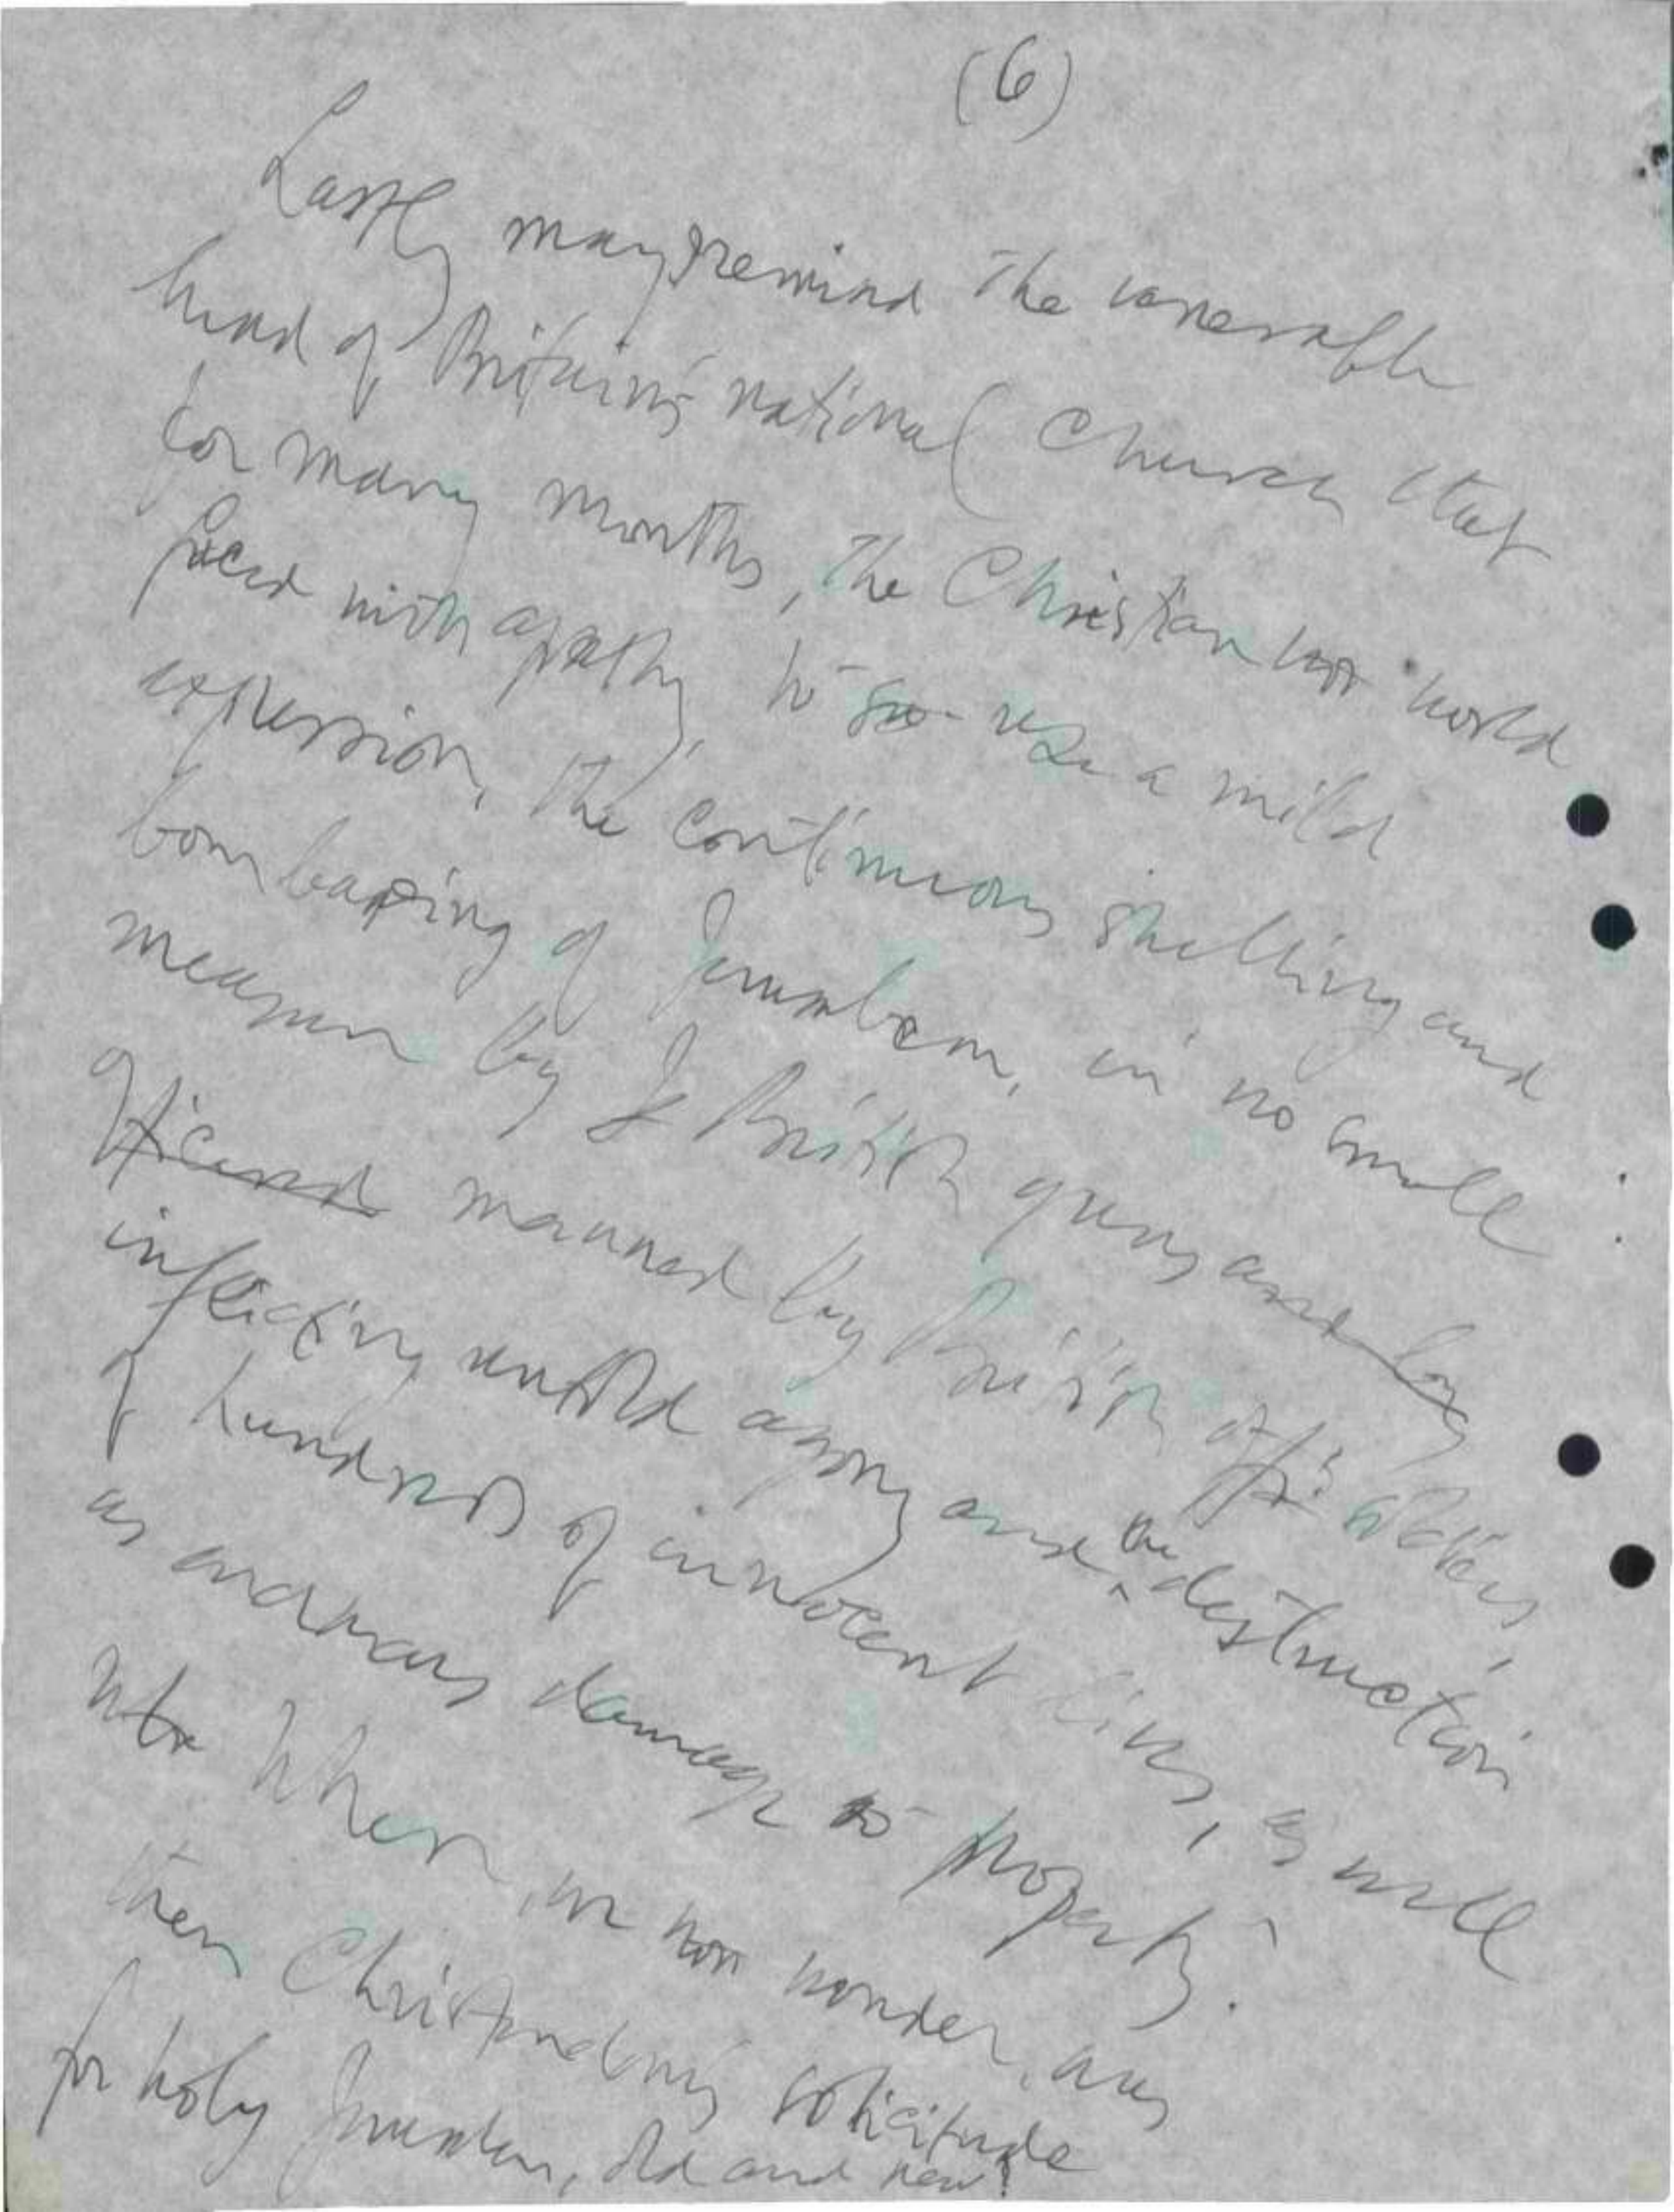 (6)
Lastly may I remind the venerable
head of Britain's national Church that
for many months, the Christian world
faced with apathy, to use a mild
expression, the continuous shelling and
bombarding of Jerusalem, in no small
measure by British guns and by
officered manned by British officers,
inflicting untold agony and the destruction
of hundreds of innocent lives, as well
as enormous damage to property.
Where, we wonder, was
then Christendom's solicitude
for holy Jerusalem, old and new?